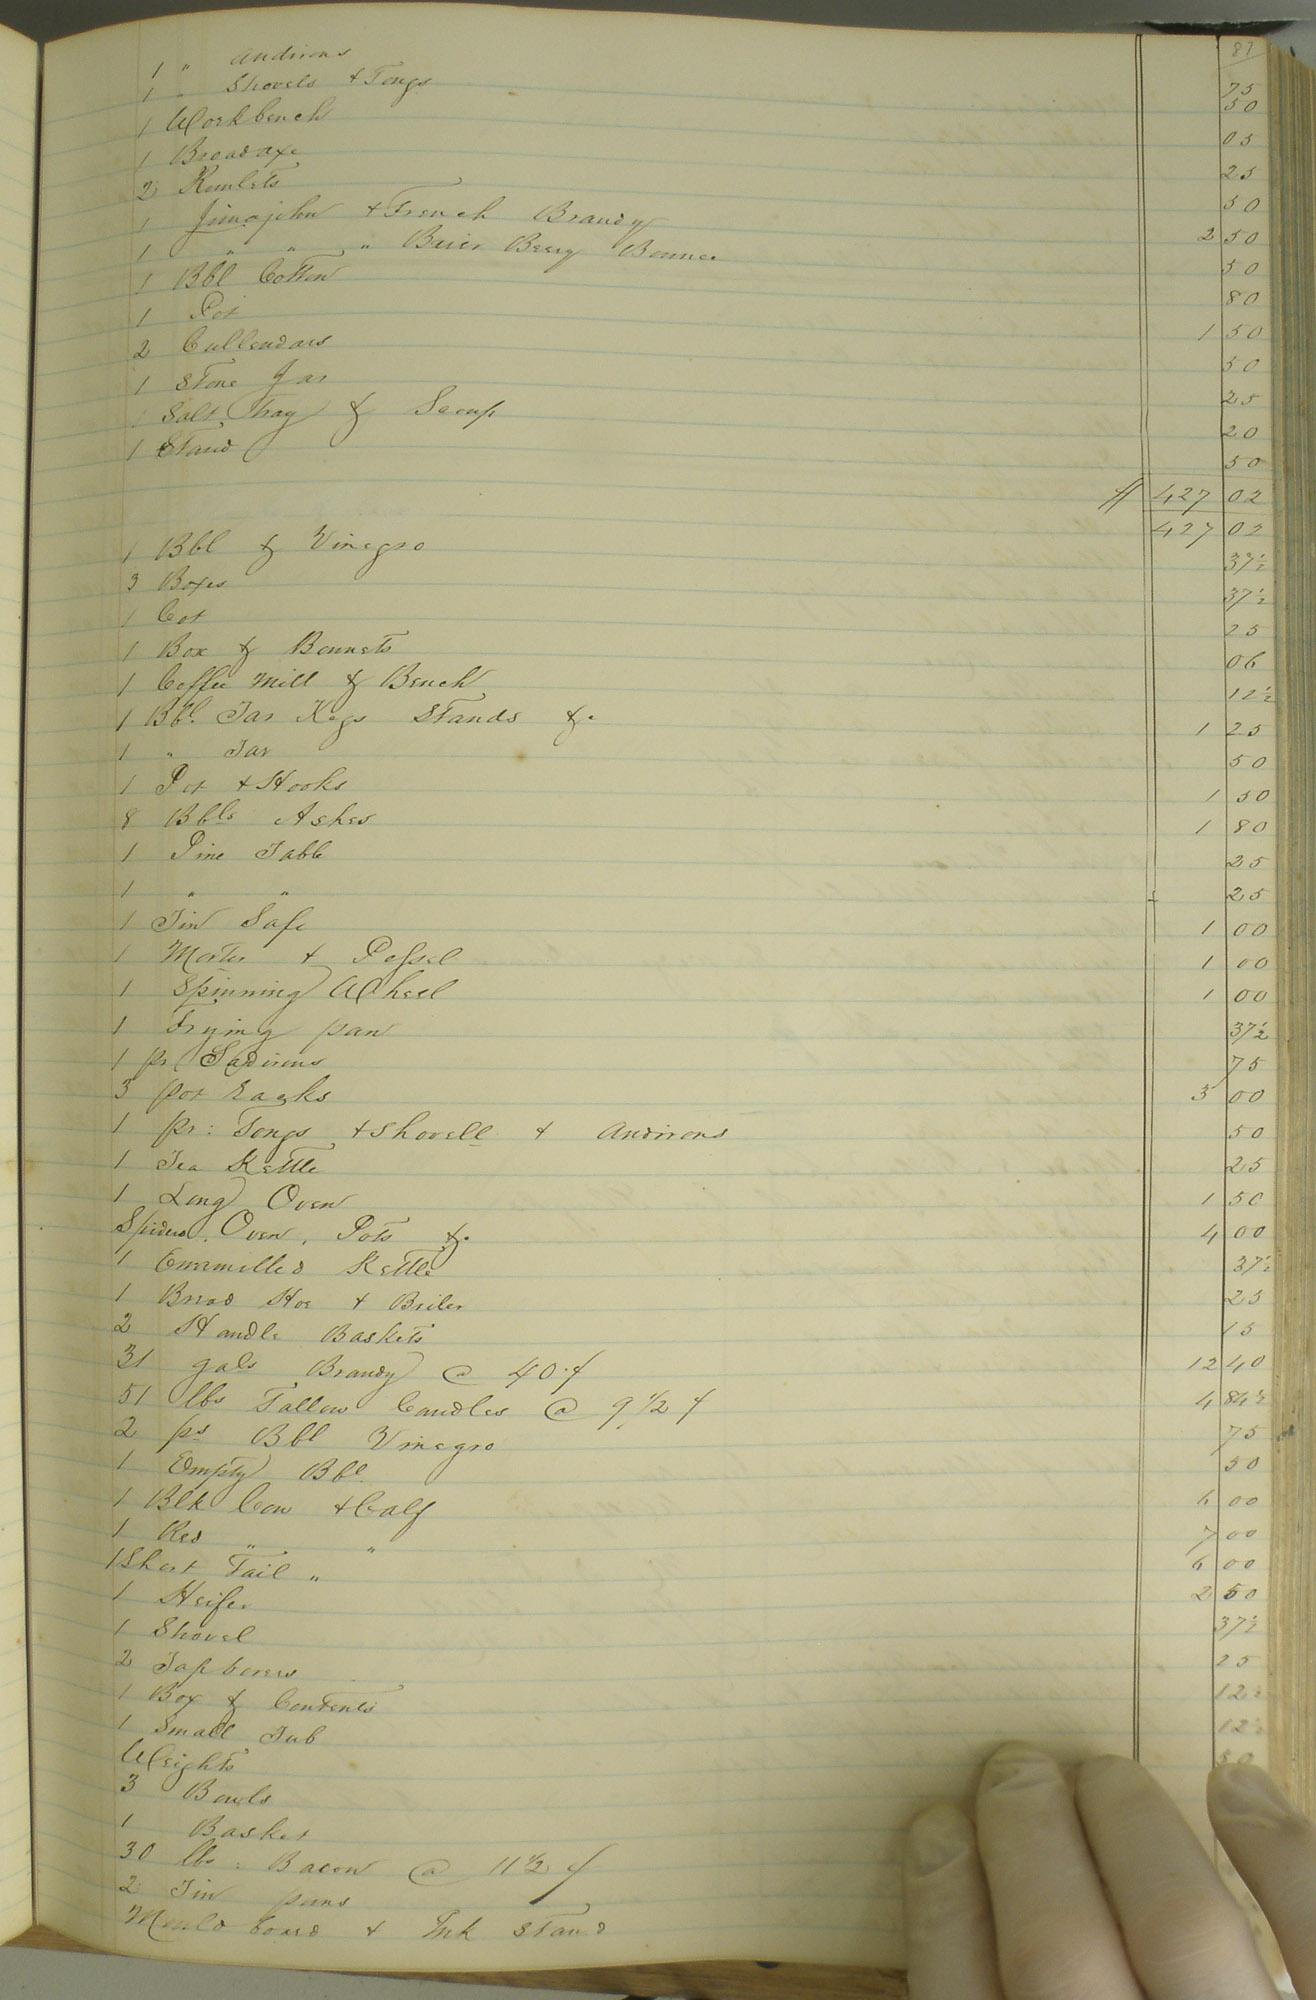 87
1 " Andirons 75
1 " Shovels & Tongs 50
1 Workbench 05
1 Broadaxe 25
2 Rundlets 50
1 Jimajohn & French Brandy 2 50
1 " " " Brier Beery Bounce 50
1 Bbl Cotton 80
1 Pot 1 50
2 Cullendars 50
1 Stone Jar 25
1 Salt Tray & Scoup 20
1 Stand 50
$ 427 02
427 02
1 Bbl & Vinegro 37½
3 Boxes 37½
1 Cot 25
1 Box & Bonnets 06
1 Coffee Mill & Bench 12½
1 Bbl. Jar Kegs Stands &. 1 25
1 " Tar 50
1 Pot & Hooks 1 50
8 Bbls Ashes 1 80
1 Pine Table 25
1 " " 25
1 Tin Safe 1 00
1 Morter & Pessel 1 00
1 Spinning Wheel 1 00
1 Frying pan 37½
1 pr Sadirons 75
3 pot racks 3 00
1 pr: Tongs & Shovell & Andirons 50
1 Tea Kettle 25
1 Long Oven 1 50
Spiders, Oven, Pots &. 4 00
1 Enamilled Kettle 37½
1 Bread Hoe & Briler 25
2 Handle Baskets 15
31 gals Brandy @ 40 ¢ 12 40
51 lbs Tallow Candles @ 9 1/2 ¢ 4 84½
2 ps Bbl Vinegro 75
1 Empty Bbl 50
1 Blk Cow & Calf 6 00
1 Red " " 7 00
1 Short Tail " 6 00
1 Heifer 2 50
1 Shovel 37½
2 Tap borers 25
1 Box & Contents 12½
1 Small Tub 12½
Weights 50
3 Bowls
1 Basket
30 lbs: Bacon @ 11 ½ ¢
2 Tin pans
Mould board & Ink Stand